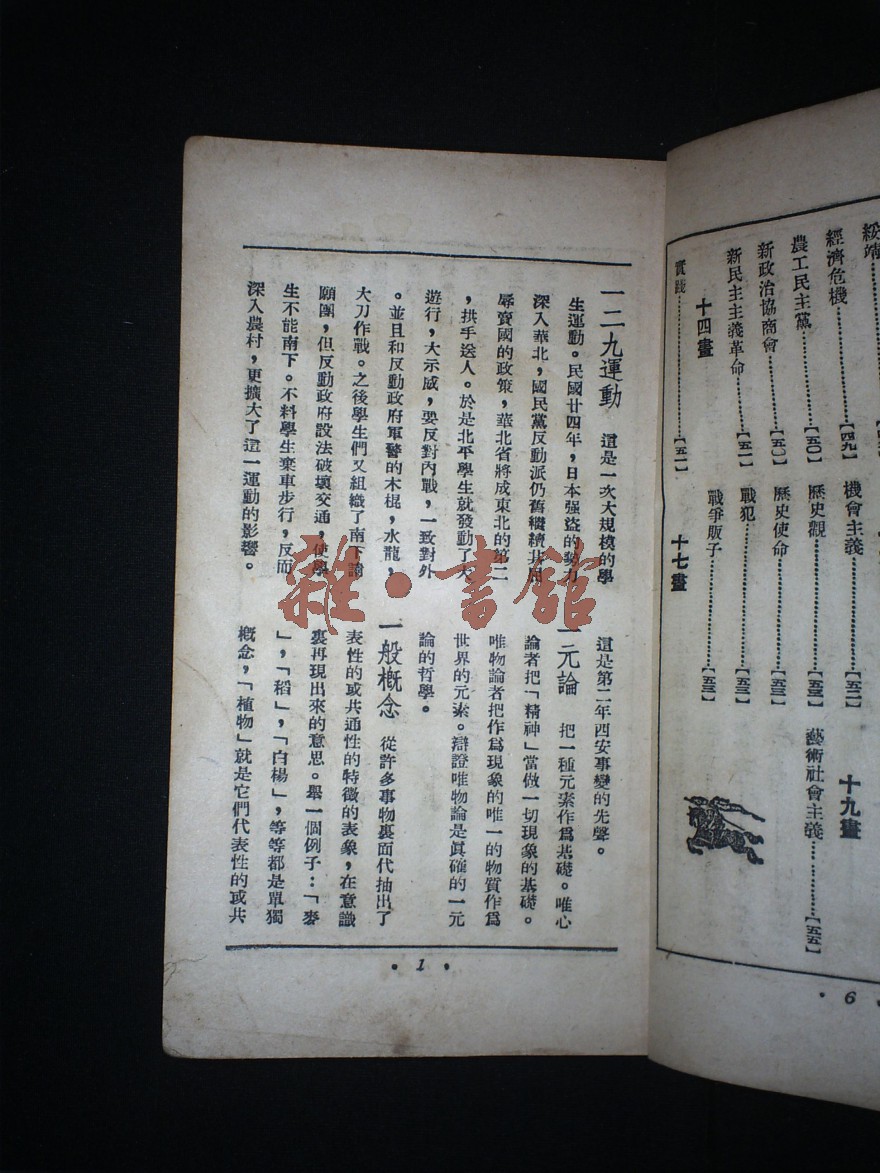 綏靖
經濟危機【四九】
農工民主黨【五〇】
新政治協商會【五〇】
新民主主義革命【五一】
十四畫
實踐【五一】
機會主義【五二】
歷史觀【五三】
歷史使命【五三】
戰犯【五三】
戰爭販子【五三】
十七畫
十九畫
藝術社會主義【五五】
• 6
一二九運動 這是一次大規模的學
生運動。民國廿四年,日本强盜的勢力
深入華北,國民黨反動派仍舊繼續其
辱賣國的政策,華北省將成東北的第二
,拱手送人。於是北平學生就發動了大
遊行,大示威,要反對內戰,一致對外
。並且和反動政府軍警的木棍,水龍,
大刀作戰。之後學生們又組織了南下請
願團,但反動政府設法破壞交通,使學
生不能南下。不料學生棄車步行,反而
深入農村,更擴大了這一運動的影響。
這是第二年西安事變的先聲。
一元論 把一種元素作爲基礎。唯心
論者把「精神」當做一切現象的基礎。
唯物論者把作爲現象的唯一的物質作爲
世界的元素。辯證唯物論是眞確的一元
論的哲學。
一般概念 從許多事物裏面代抽出了
表性的或共通性的特徵的表象,在意識
裏再現出來的意思。舉一個例子:「麥
」,「稻」,「白楊」,等等都是單獨
概念,「植物」就是它們代表性的或共
• 1 •
雜·書館